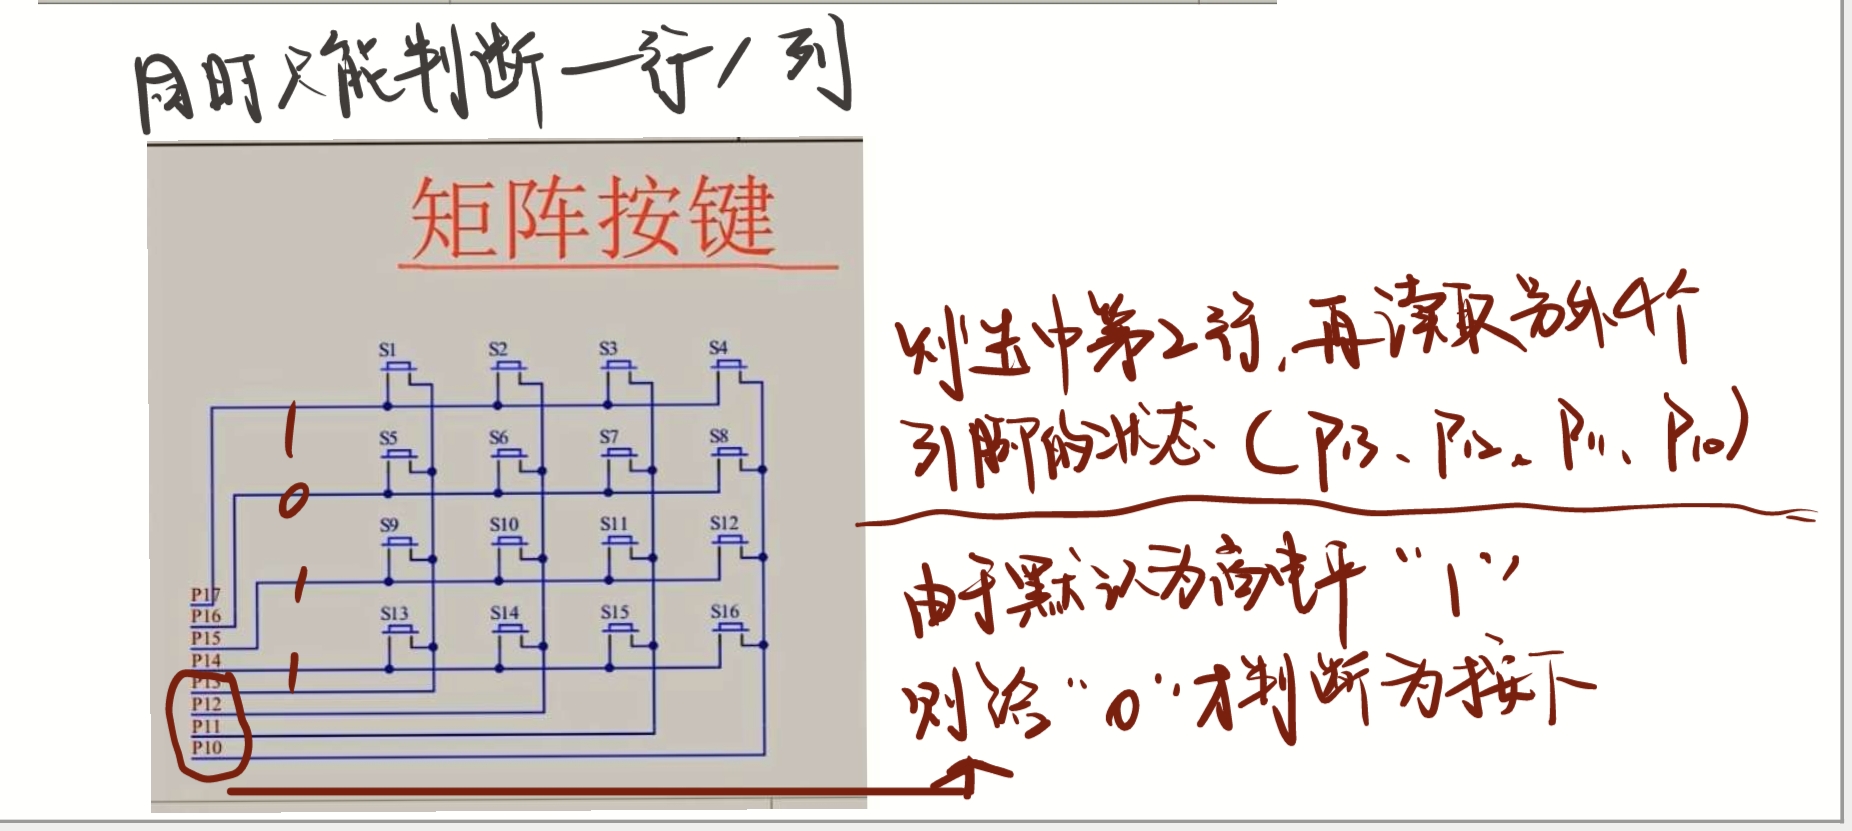 同时只能判断一行/列
矩阵按键
S1 S2 S3 S4
1
S5 S6 S7 S8
0
S9 S10 S11 S12
1
P17
P16
P15
P14
P13
P12
P11
P10
S13 S14 S15 S16
1
则选中第2行,再读取另外4个
引脚的状态 (P13、P12、P11、P10)
由于默认为高电平“1”
则给“0”才判断为按下